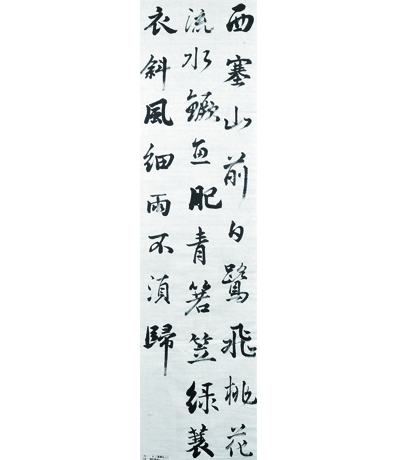 西塞山前白鷺飛桃花
流水鱖魚肥青箬笠綠蓑
衣斜風細雨不須歸